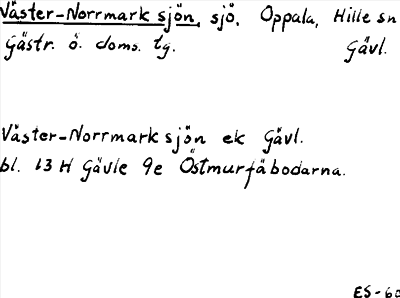 Väster-Norrmarksjön, sjö, Oppala, Hille sn
Gästr. ö. doms. tg. Gävl.
Väster-Norrmarksjön ek Gävl.
bl. 13 H Gävle 9e Östmurfäbodarna.
ES-60